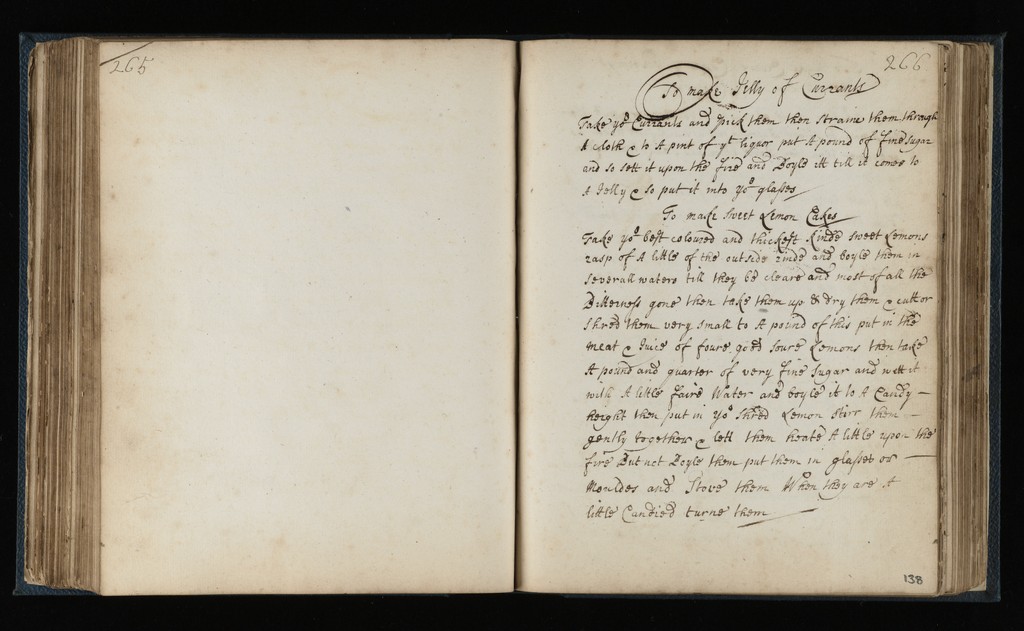 265
266
To make Jelly of Currants
Take yor Currants and pick them then straine them through
A cloth & to A pint of yt liquor put A pound of fine Sugar
and so sett it upon the fire and Boyle itt till it comes to
A Jelly & so put it into yor glasses
To make sweet Lemon Cakes
Take yor best coloured and thickest Rinde sweet Lemons
rasp of A little of the outside rinde and boyle them in
severall waters till they be cleare and most of all the
Bitterness gone then take them up & dry them & cutt or
Shred them very small to A pound of this put in the
meat & Juice of foure good soure Lemons then take
A pound and quarter of very fine Sugar and wett it
with A little faire Water and boyle it to A Candy
height then put in yor Shred Lemon Stirr them
gently together & lett them heate A little upon the
fire But not Boyle them put them in glasses or
Mouldes and Stove them When they are A
little Candied turne them
138